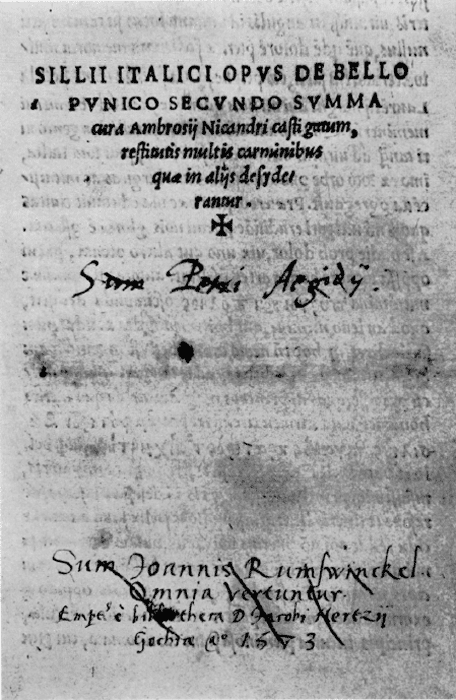 SILLII ITALICI OPVS DE BELLO
PVNICO SECVNDO SVMMA
cura Ambrosij Nicandri castigatum,
restitutis multis carminibus
quæ in alijs desyde⸗
rantur.
✠
Sum Petri Aegidÿ.
Sum Joannis Rumswinckel.
Omnia Vertuntur.
Empt' è bibliotheca D Jacobi Hertzij
Gochiæ Aº 1573